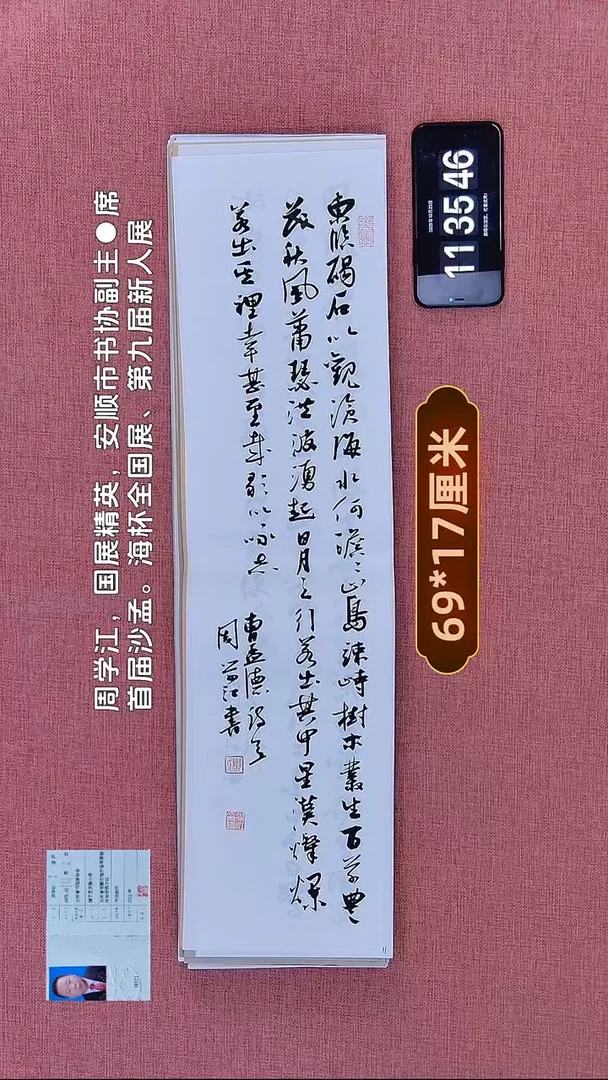 東臨碣石以觀滄海水何澹〻山島竦峙樹木叢生百草豐
茂秋風蕭瑟洪波湧起日月之行若出其中星漢燦爛
若出其裡幸甚至哉歌以詠志
曹孟德詩
周學江書
周学江，国展精英，安顺市书协副主●席
首届沙孟。海杯全国展、第九届新人展
11 35 46
69*17厘米